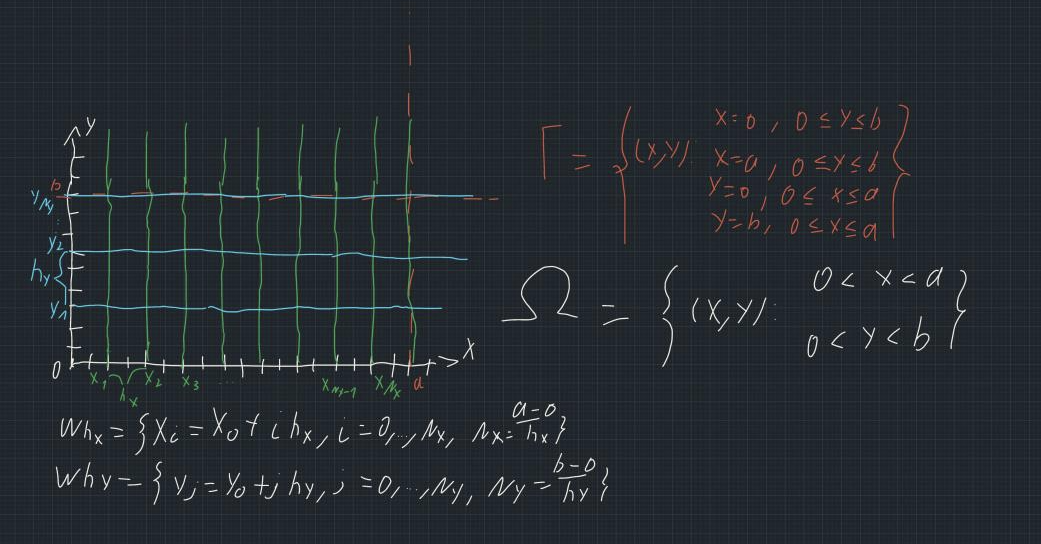 Y
b
y_Ny
:
y_2
h_y {
y_1
0
X
x_1 x_2 x_3 ... x_{Nx-1} x_Nx a
h_x
Γ = { (x,y): x=0, 0 ≤ y ≤ b
x=a, 0 ≤ y ≤ b
y=0, 0 ≤ x ≤ a
y=b, 0 ≤ x ≤ a }
Ω = { (x,y): 0 < x < a
0 < y < b }
Wh_x = { x_i = x_0 + i h_x, i = 0,..,N_x, N_x = (a-0)/h_x }
Wh_y = { y_j = y_0 + j h_y, j = 0,..,N_y, N_y = (b-0)/h_y }